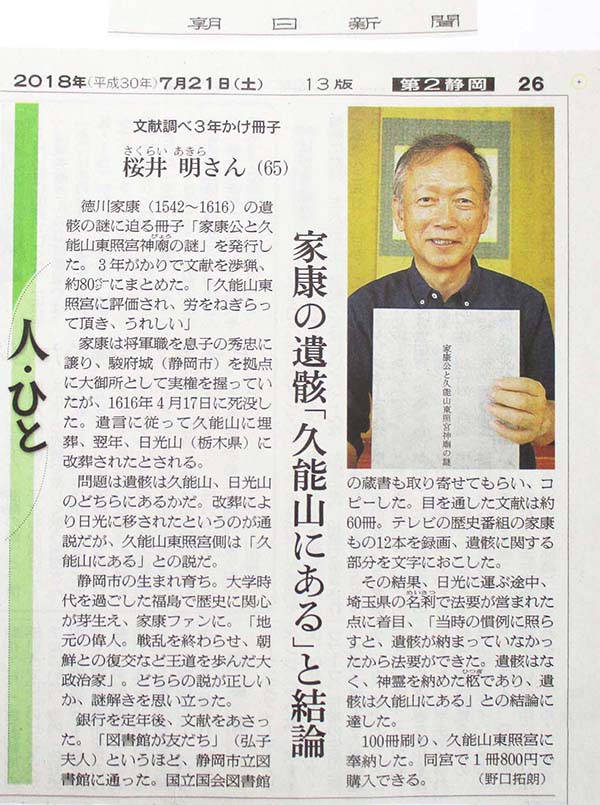 朝日新聞
2018年(平成30年)7月21日(土) 13版 第2静岡 26
人・ひと
文献調べ3年かけ冊子
さくらい あきら
桜井 明さん (65)
家康の遺骸「久能山にある」と結論
徳川家康(1542〜1616)の遺
骸の謎に迫る冊子「家康公と久
びょう
能山東照宮神廟の謎」を発行し
た。3年がかりで文献を渉猟、
約80㌻にまとめた。「久能山東
照宮に評価され、労をねぎらっ
て頂き、うれしい」
家康は将軍職を息子の秀忠に
譲り、駿府城(静岡市)を拠点
に大御所として実権を握ってい
たが、1616年4月17日に死没し
た。遺言に従って久能山に埋
葬、翌年、日光山(栃木県)に
改葬されたとされる。
問題は遺骸は久能山、日光山
のどちらにあるかだ。改葬によ
り日光に移されたというのが通
説だが、久能山東照宮側は「久
能山にある」との説だ。
静岡市の生まれ育ち。大学時
代を過ごした福島で歴史に関心
が芽生え、家康ファンに。「地
元の偉人。戦乱を終わらせ、朝
鮮との復交など王道を歩んだ大
政治家」。どちらの説が正しい
か、謎解きを思い立った。
銀行を定年後、文献をあさっ
た。「図書館が友だち」(弘子
夫人)というほど、静岡市立図
書館に通った。国立国会図書館
家康公と久能山東照宮神廟の謎
の蔵書も取り寄せてもらい、コ
ピーした。目を通した文献は約
60冊。テレビの歴史番組の家康
もの12本を録画、遺骸に関する
部分を文字におこした。
その結果、日光に運ぶ途中、
めいさつ
埼玉県の名刹で法要が営まれた
点に着目、「当時の慣例に照ら
すと、遺骸が納まっていなかっ
たから法要ができた。遺骸はな
ひつぎ
く、神霊を納めた柩であり、遺
骸は久能山にある」との結論に
達した。
100冊刷り、久能山東照宮に
奉納した。同宮で1冊800円で
購入できる。 (野口拓朗)